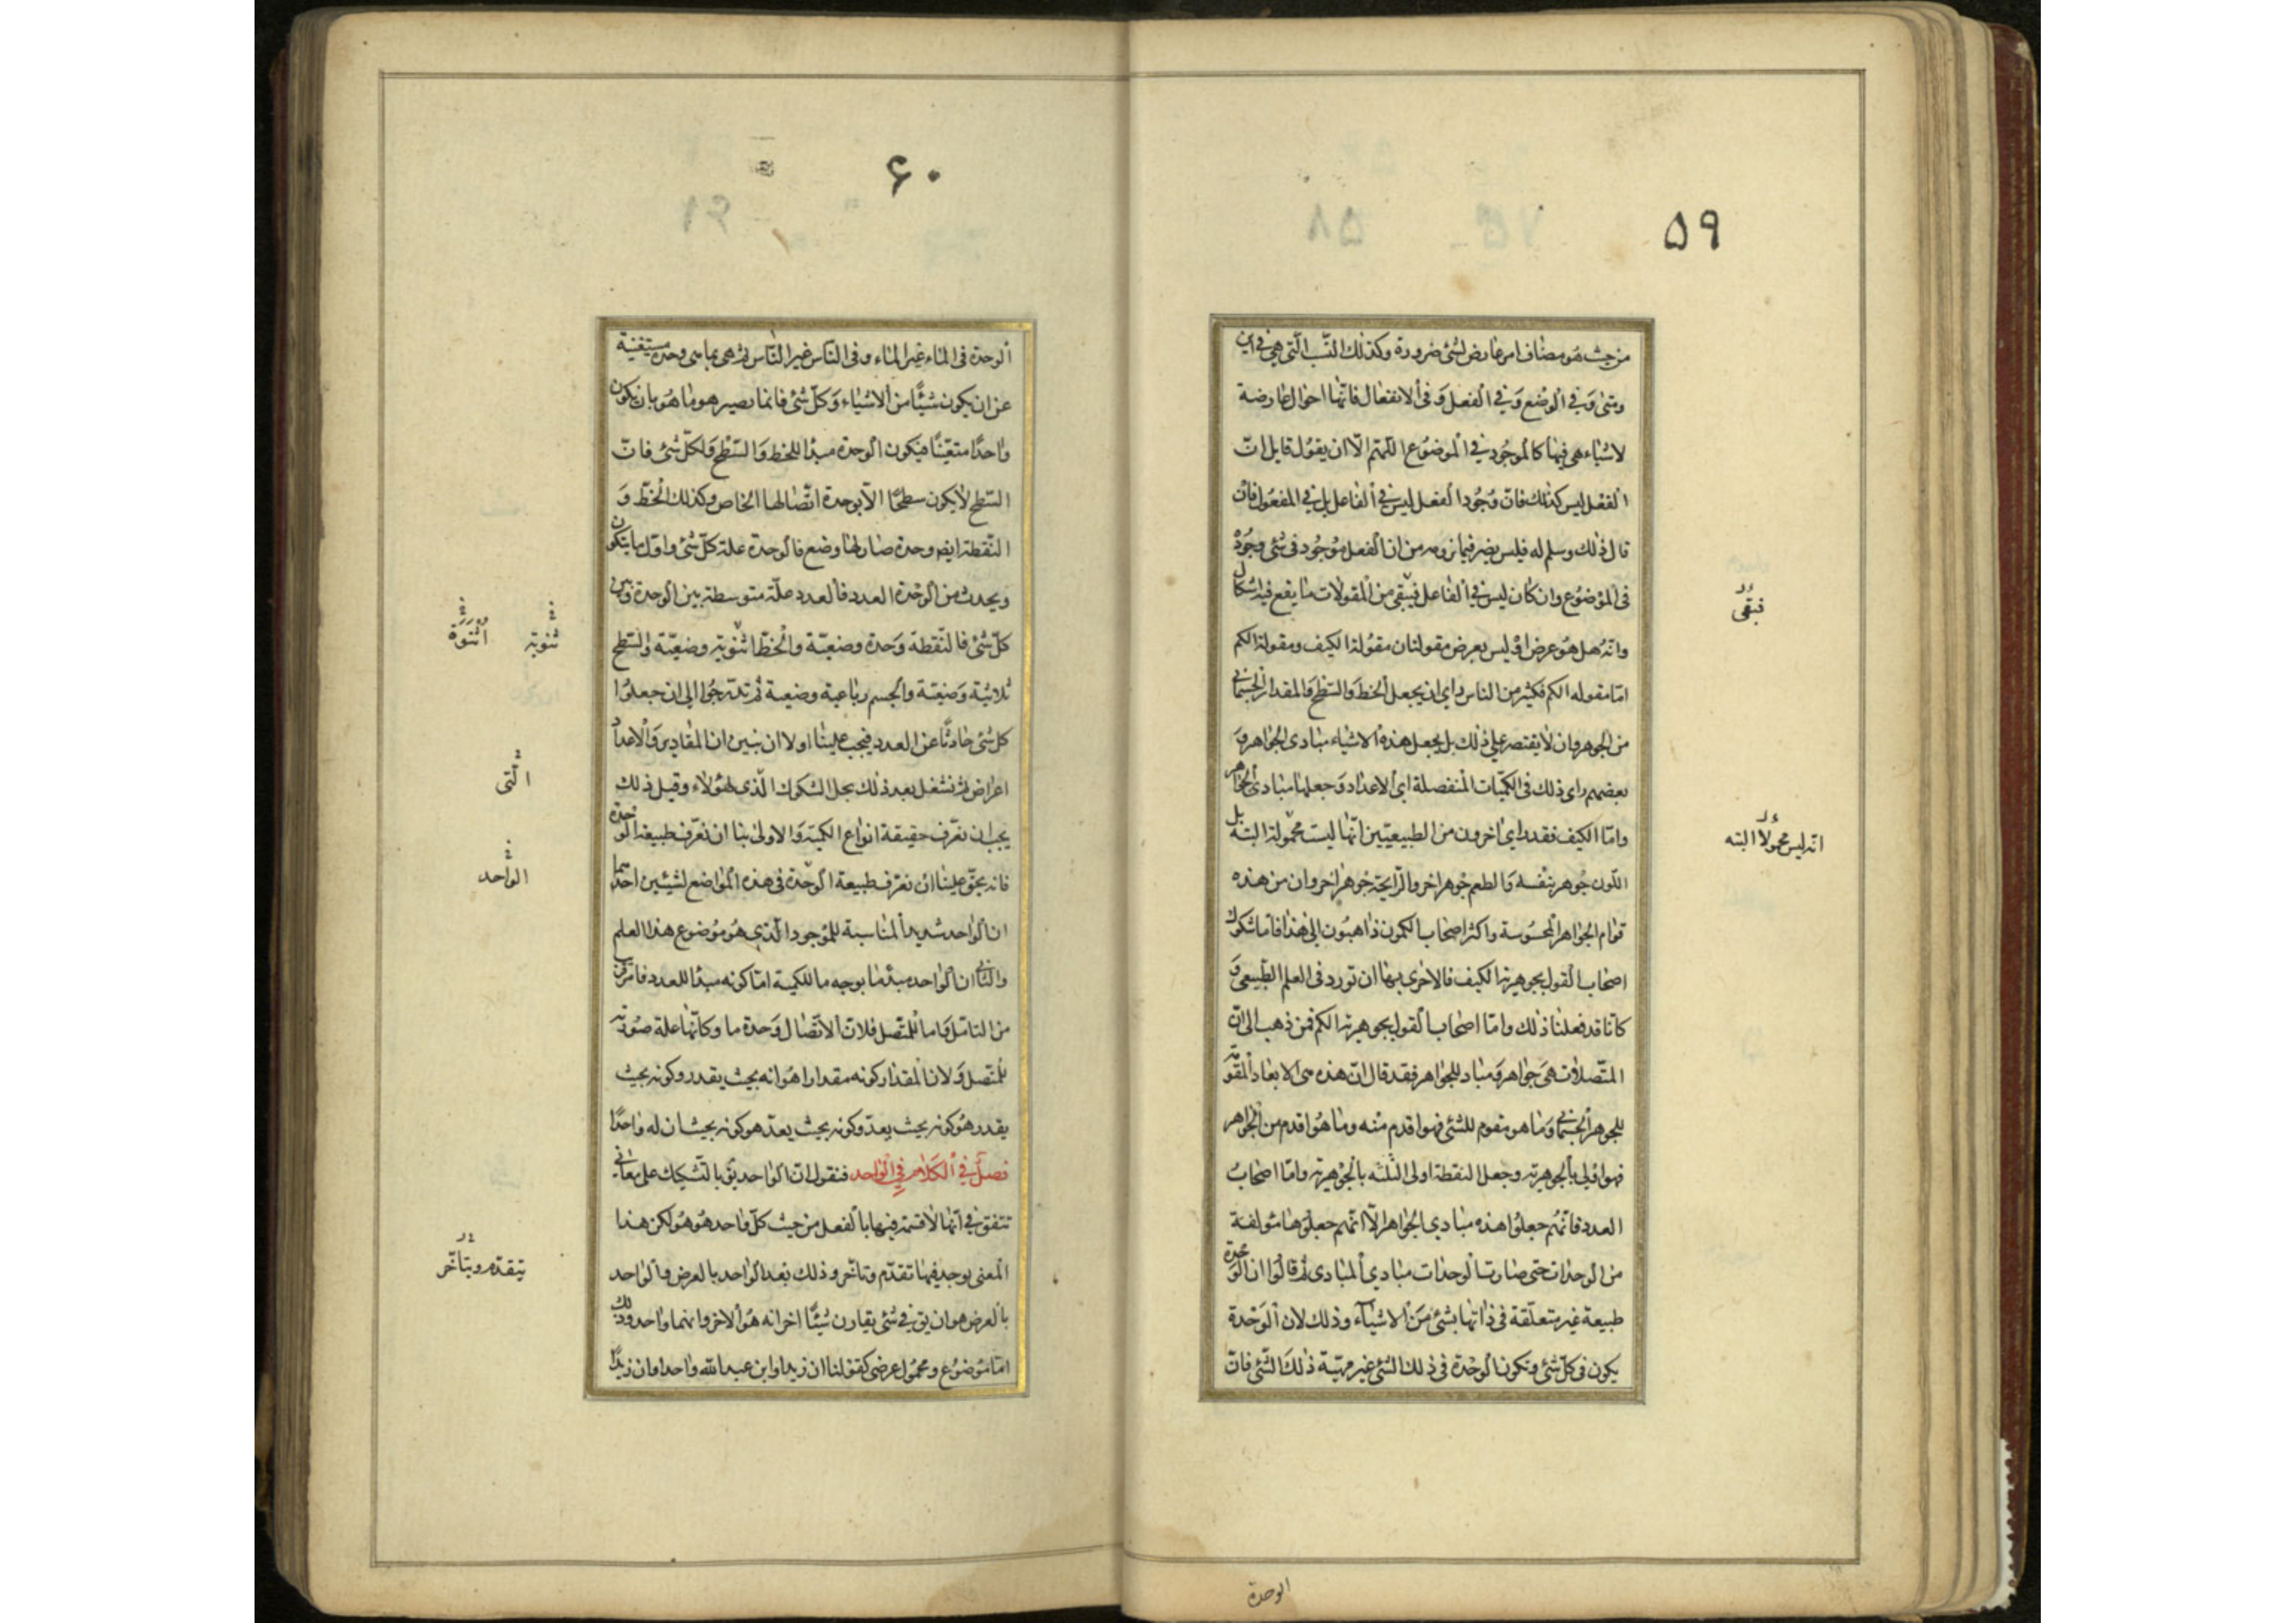 ۵۹
من حيث هو مضاف امر عارض لشئ ضرورة وكذلك النسب الّتى هى فى اين
ومتى وَفى الوضع وَفى الفعل وَفى الانفعال فانّها احوال عارضة
لاشياء هى فيها كالموجُود فى الموضوع اللّهم الّا ان يقول قايل انّ
الفعل ليس كذلك فانّ وجُود الفعل ليس فى الفاعل بل فى المفعول فان
قال ذلك وسلم له فليس يضر فيما نرومه من ان الفعل موجُود فى شئ وجُودٌ
فى الموضوع وان كان ليس فى الفاعل فيبقى من المقولات ما يقع فيه اشكال
وانّه هل هو عرض اوْ ليس بعرض مقولتان مقولة الكيف ومقولة الكم
امّا مقوله الكم فكثير من الناس راى ان يجعل الخط وَالسّطح وَالمقدار الجسمانى
من الجوهر وان لا يقتصر على ذلك بل يجعل هذه الاشياء مبادى الجواهر وَ
بعضهم راى ذلك فى الكميّات المنفصلة اى الاعداد وَجعلها مبادى الجواهر
وامّا الكيف فقد راى اخرون من الطبيعيّين انّها ليست محمولة البتة بل
اللّون جُوهر بنفسه وَالطعم جوهر اخر والرّايحة جوهر اخر وان من هذه
قوام الجواهر المحسُوسة واكثر اصحاب الكمون ذاهبُون الى هذا فامّا شكوك
اصحاب القول بجوهرية الكيف فالاحرى بها ان تورد فى العلم الطّبيعى وَ
كانّا قد فعلنا ذلك وامّا اصحاب القول بجوهرية الكم فمن ذهب الى انّ
المتّصلات هى جَواهر وَمبادٍ للجواهر فقد قال انّ هذه هى الابعاد المقوّمة
للجوهر الجسمانى وَما هو مقوم للشئ فهو اقدم منه وما هُو اقدم من الجوهر
فهو اولى بالجوهرية وجعل النقطة اولى الثلثه بالجوهرية وامّا اصحابُ
العدد فانّهُم جعلوُا هذه مبادى الجواهر الّا انّهم جعلوها مؤلفة
من الوحدات حتى صارت الوحدات مبادى المبادى ثم قالوُا ان الوحدة
طبيعة غير متعلّقة فى ذاتها بشئ مَن الاشياء وذلك لان الوَحْدة
يكون فى كلّ شئ وتكون الوحْدة فى ذلك الشئ غير مهيّة ذلكَ الشّئ فانّ
فبقى
انّه ليس محمولا البته
الوحدة
۶۰
الوحدة فى الماء غير الماء وفى النّاس غير النّاس ثم هى بما هى وحدة مستغنية
عن ان يكون شيئًا من الاشياء وَكلّ شئ فانما يصير هو ما هُو بان يكون
واحدًا متعيّنًا فيكون الوحدة مبدا للخط وَالسّطح وَلكلّ شئ فانّ
السّطح لا يكون سطحًا الّا بوحدة اتّصالها الخاص وكذلك الخطّ وَ
النّقطة ايض وحدة صار لها وضع فالوحدة علة كلّ شئ واوّل ما يتكون
ويحدث من الوحْدة العدد فالعدد علّة متوسطة بين الوحدة وَبين
كلّ شئ فالنّقطة وَحدة وضعيّة والخطّ اثنويّة وضعيّة وَالسّطح
ثلاثيّة وَضعيّة والجسم رباعية وضعية ثم تدرّجُوا الى ان جعلوُا
كل شئ حادثًا عن العدد فيجب علينا اولا ان نبين ان المقادير وَالاعداد
اعراض ثم نشتغل بعد ذلك بحل الشكوك الّذى لهؤلاء وقبل ذلك
يجب ان نعرّف حقيقة انواع الكمية وَالاولى بنا ان نعرّف طبيعة الوحدة
فانه يحقّ علينا ان نعرّف طبيعة الوحدة فى هذه المْواضع لشيئين احدهما
ان الواحد شديد المناسبة للموجود الّذى هُو موْضوع هذا العلم
والثّانى ان الواحد مبدٔ ما بوجه ما للكمية امّا كونه مبدا للعدد فامر قريب
من التامّل وَاما للمتّصل فلانّ الاتّصال وَحدة ما وكانّها علة صُورية
للمتّصل وَلان المقدار كونه مقدارا هُو انه بحيث يقدر وكونه بحيث
يقدر هُو كونه بحيث يعدّ وكونه بحيث يعدّ هو كونه بحيث ان له واحدًا
فصلٌ فى الكلام فى الواحد فنقول انّ الواحد يق بالتّشكيك على معانى
تتفق فى انّها لا قسمة فيها بالفعل من حيث كلّ واحد هُو هُو لكن هذا
المعنى يوجد فيها تقدّم وتاخّر وذلك بعد الواحد بالعرض والواحد
بالعرض هو ان يق فى شئ يقارن شيئًا اخر انه هُو الاخر وانهما واحد وذلك
امّا موْضوُع ومحمُول عرضى كقولنا ان زيدا وابن عبد الله واحد وان زيدًا
ثنوية
اثنوَة
الّتى
الواحد
يتقدّم ويتاخّر